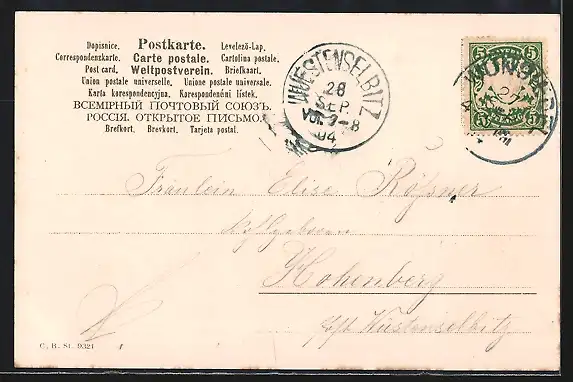 Dopisnice. Postkarte. Levelező-Lap.
Correspondenzkarte. Carte postale. Cartolina postale.
Post card. Weltpostverein. Briefkaart.
Union postale universelle. Unione postale universale.
Karta korespondencyjna. Korespondenční listek.
ВСЕМІРНЫЙ ПОЧТОВЫЙ СОЮЗЪ.
РОССІЯ. ОТКРЫТОЕ ПИСЬМО.
Brefkort. Brevkort. Tarjeta postal.
WUESTENSELBITZ
28
SEP.
VOR. 7-8
04
5 5
5 5
Fräulein Elise Rößner
Hohenberg
Wüstenselbitz
C. B. St. 9321